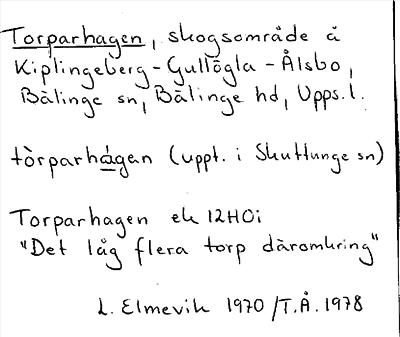 Torparhagen, skogsområde å
Kiplingeberg - Gullögla - Ålsbo,
Bälinge sn, Bälinge hd, Upps. l.
tòrparhágen (uppt. i Skuttunge sn)
Torparhagen ek 12H0i
"Det låg flera torp däromkring"
L. Elmevik 1970/T.Å. 1978